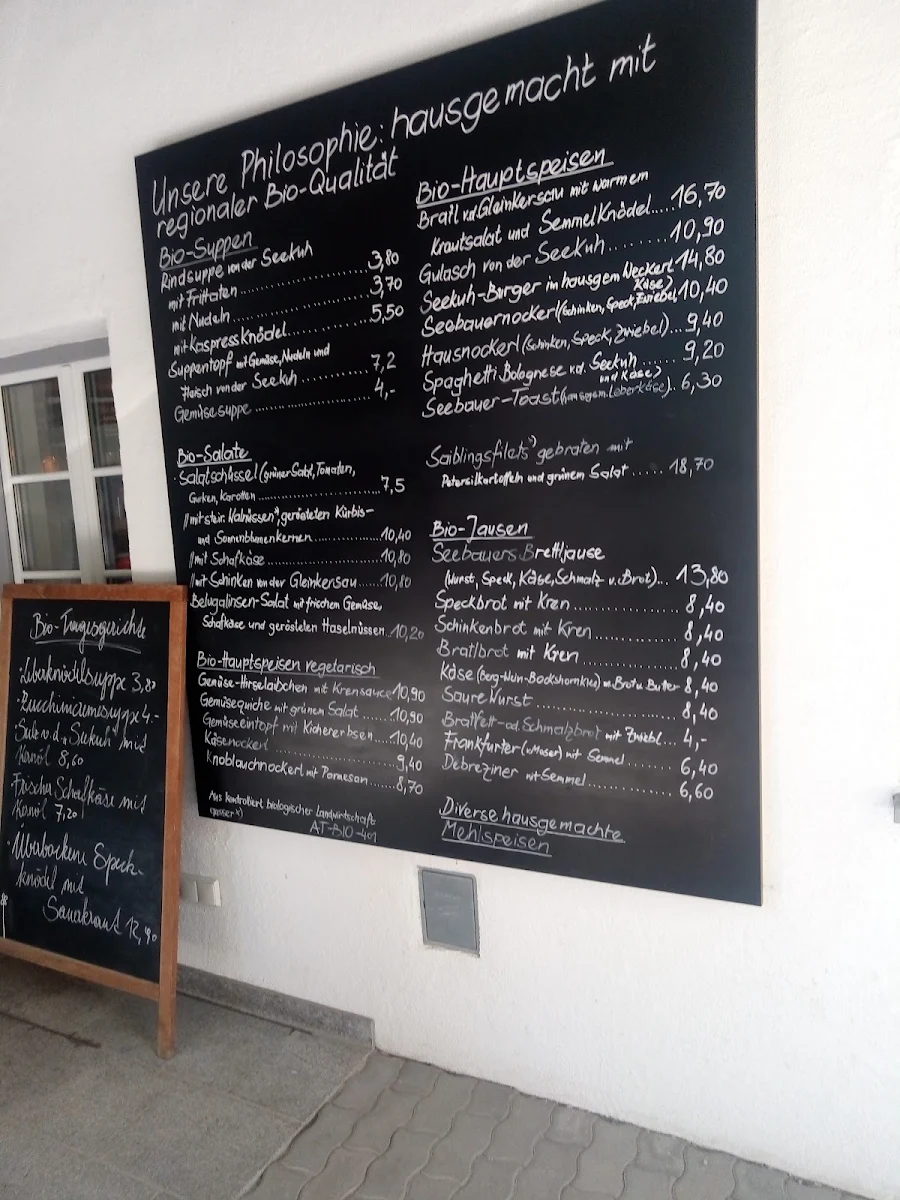 Unsere Philosophie: hausgemacht mit
regionaler Bio-Qualität
Bio-Suppen
Rindsuppe von der Seekuh
mit Frittaten 3,80
mit Nudeln 3,70
mit Kaspressknödel 5,50
Suppentopf mit Gemüse, Nudeln und
Fleisch von der Seekuh 7,2
Gemüsesuppe 4,-
Bio-Salate
Salatschüssel (grüner Salat, Tomaten,
Gurken, Karotten 7,5
//mit steir. Walnüssen*, gerösteten Kürbis-
und Sonnenblumenkernen 10,40
//mit Schafkäse 10,80
//mit Schinken von der Gleinkersau 10,80
Belugalinsen-Salat mit frischem Gemüse,
Schafkäse und gerösteten Haselnüssen 10,20
Bio-Hauptspeisen vegetarisch
Gemüse-Hirselaibchen mit Krensauce 10,90
Gemüsequiche mit grünem Salat 10,90
Gemüseeintopf mit Kichererbsen 10,40
Käsenockerl 9,40
Knoblauchnockerl mit Parmesan 8,70
Aus kontrolliert biologischer Landwirtschaft
AT-BIO-401
Bio-Hauptspeisen
Bratl v.d. Gleinkersau mit warmem
Krautsalat und Semmelknödel 16,70
Gulasch von der Seekuh 10,90
Seekuh-Burger im hausgem. Weckerl 14,80
Seebauernockerl (Schinken, Speck, Zwiebel, Käse) 10,40
Hausnockerl (Schinken, Speck, Zwiebel) 9,40
Spaghetti Bolognese v.d. Seekuh 9,20
Seebauer-Toast (hausgem. Leberkäse und Käse) 6,30
Saiblingsfilets*) gebraten mit
Petersilkartoffeln und grünem Salat 18,70
Bio-Jausen
Seebauers Brettljause
(Wurst, Speck, Käse, Schmalz u. Brot) 13,80
Speckbrot mit Kren 8,40
Schinkenbrot mit Kren 8,40
Bratlbrot mit Kren 8,40
Käse (Berg-Heim-Bockshornklee) m. Brot u. Butter 8,40
Saure Wurst 8,40
Bratlfett- od. Schmalzbrot mit Zwiebl 4,-
Frankfurter mit Semmel 6,40
Debreziner mit Semmel 6,60
Diverse hausgemachte
Mehlspeisen
Bio-Tagesgerichte
·Leberknödelsuppe 3,80
·Zucchinicremesuppe 4.-
Sulz v.d. Seekuh mit
Kernöl 8,60
·Frischer Schafkäse mit
Kernöl 7,20
·Überbackene Speck-
knödel mit
Sauerkraut 12,40